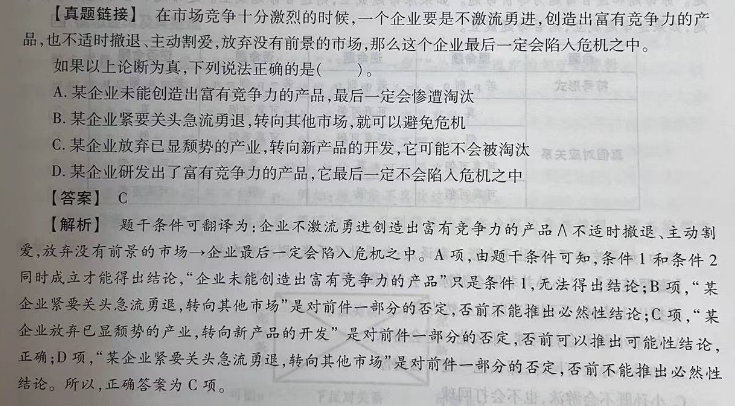 【真题链接】 在市场竞争十分激烈的时候,一个企业要是不激流勇进,创造出富有竞争力的产
品,也不适时撤退、主动割爱,放弃没有前景的市场,那么这个企业最后一定会陷入危机之中。
如果以上论断为真,下列说法正确的是( )。
A. 某企业未能创造出富有竞争力的产品,最后一定会惨遭淘汰
B. 某企业紧要关头急流勇退,转向其他市场,就可以避免危机
C. 某企业放弃已显颓势的产业,转向新产品的开发,它可能不会被淘汰
D. 某企业研发出了富有竞争力的产品,它最后一定不会陷入危机之中
【答案】 C
【解析】 题干条件可翻译为:企业不激流勇进创造出富有竞争力的产品∧不适时撤退、主动割
爱,放弃没有前景的市场→企业最后一定会陷入危机之中。A 项,由题干条件可知,条件 1 和条件 2
同时成立才能得出结论,“企业未能创造出富有竞争力的产品”只是条件 1,无法得出结论;B 项,“某
企业紧要关头急流勇退,转向其他市场”是对前件一部分的否定,否前不能推出必然性结论;C 项,“某
企业放弃已显颓势的产业,转向新产品的开发”是对前件一部分的否定,否前可以推出可能性结论,
正确;D 项,“某企业紧要关头急流勇退,转向其他市场”是对前件一部分的否定,否前不能推出必然性
结论。所以,正确答案为 C 项。